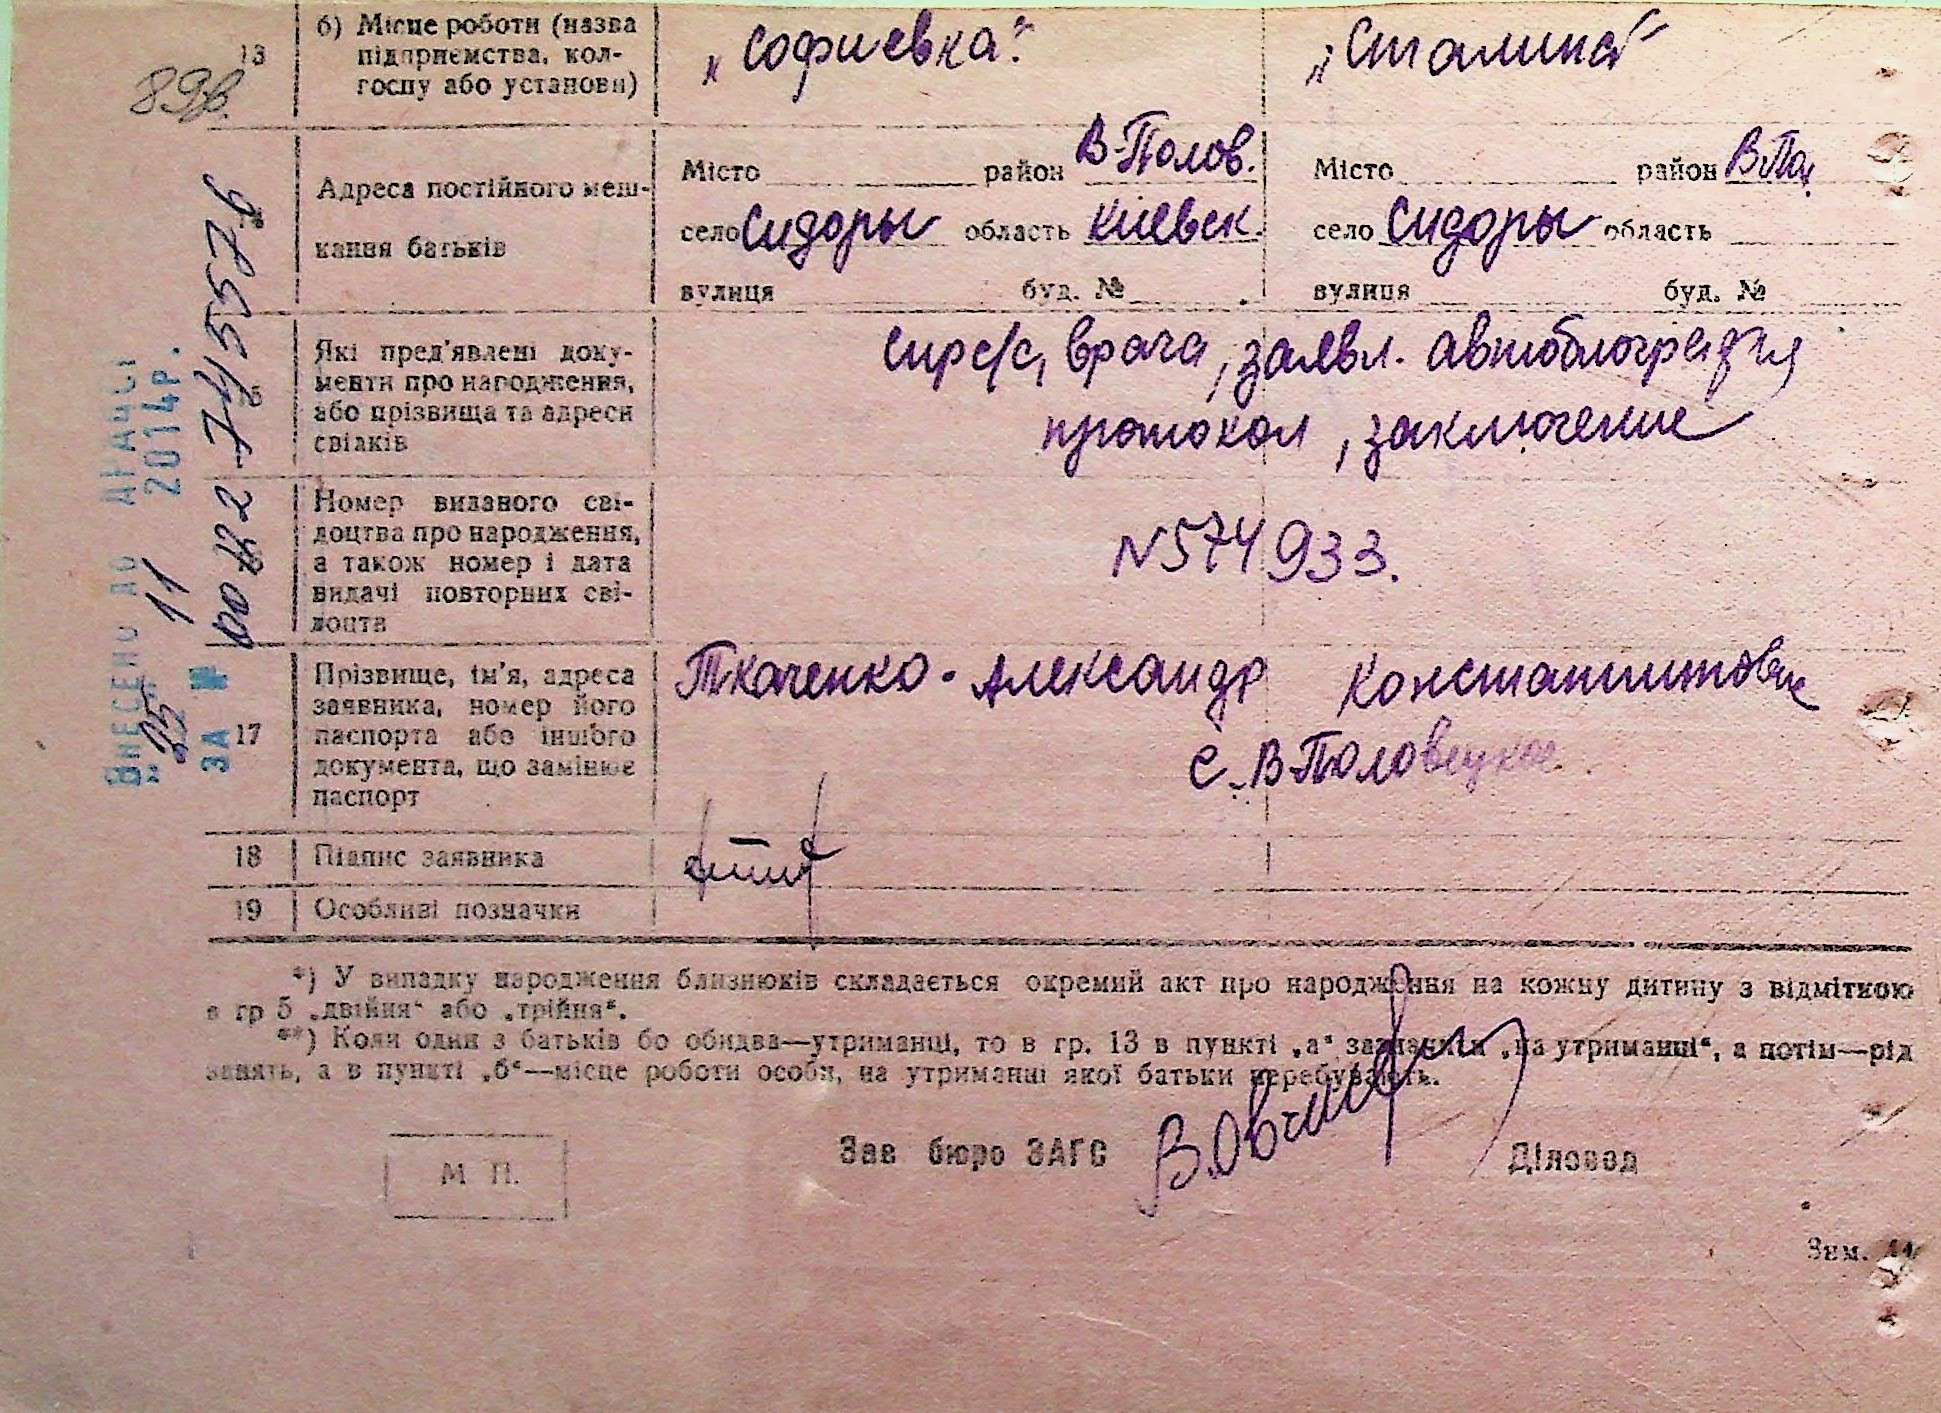 13
б) Місце роботи (назва
підприємства, кол-
госпу або установи)
„Софиевка“.
„Сталина“
89в.
Адреса постійного меш-
кання батьків
Місто район В-Полов.
село Сидоры область Киевск.
вулиця буд. №
Місто район В-По
село Сидоры область
вулиця буд. №
Які пред'явлені доку-
менти про народження,
або прізвища та адреси
свідків
спр с/с, врача, заявл. автоблография
протокол, заключение
Номер виданого сві-
доцтва про народження,
а також номер і дата
видачі повторних сві-
доцтв
N574933.
17
Прізвище, ім'я, адреса
заявника, номер його
паспорта або іншого
документа, що замінює
паспорт
Ткаченко - Александр Константинович
с. В-Половецкое
18
Підпис заявника
19
Особливі позначки
*) У випадку народження близнюків складається окремий акт про народження на кожну дитину з відміткою
в гр 5 „двійня“ або „трійня“.
**) Коли один з батьків бо обидва—утриманці, то в гр. 13 в пункті „а“ зазначити „на утриманні“, а потім—рід
занять, а в пункті „б“—місце роботи особи, на утриманні якої батьки перебувають.
Зав бюро ЗАГС
Діловод
М П.
Зим.
ВНЕСЕНО ДО ДРАЦС
„25“ 11 2014р.
ЗА № 00122 7455576